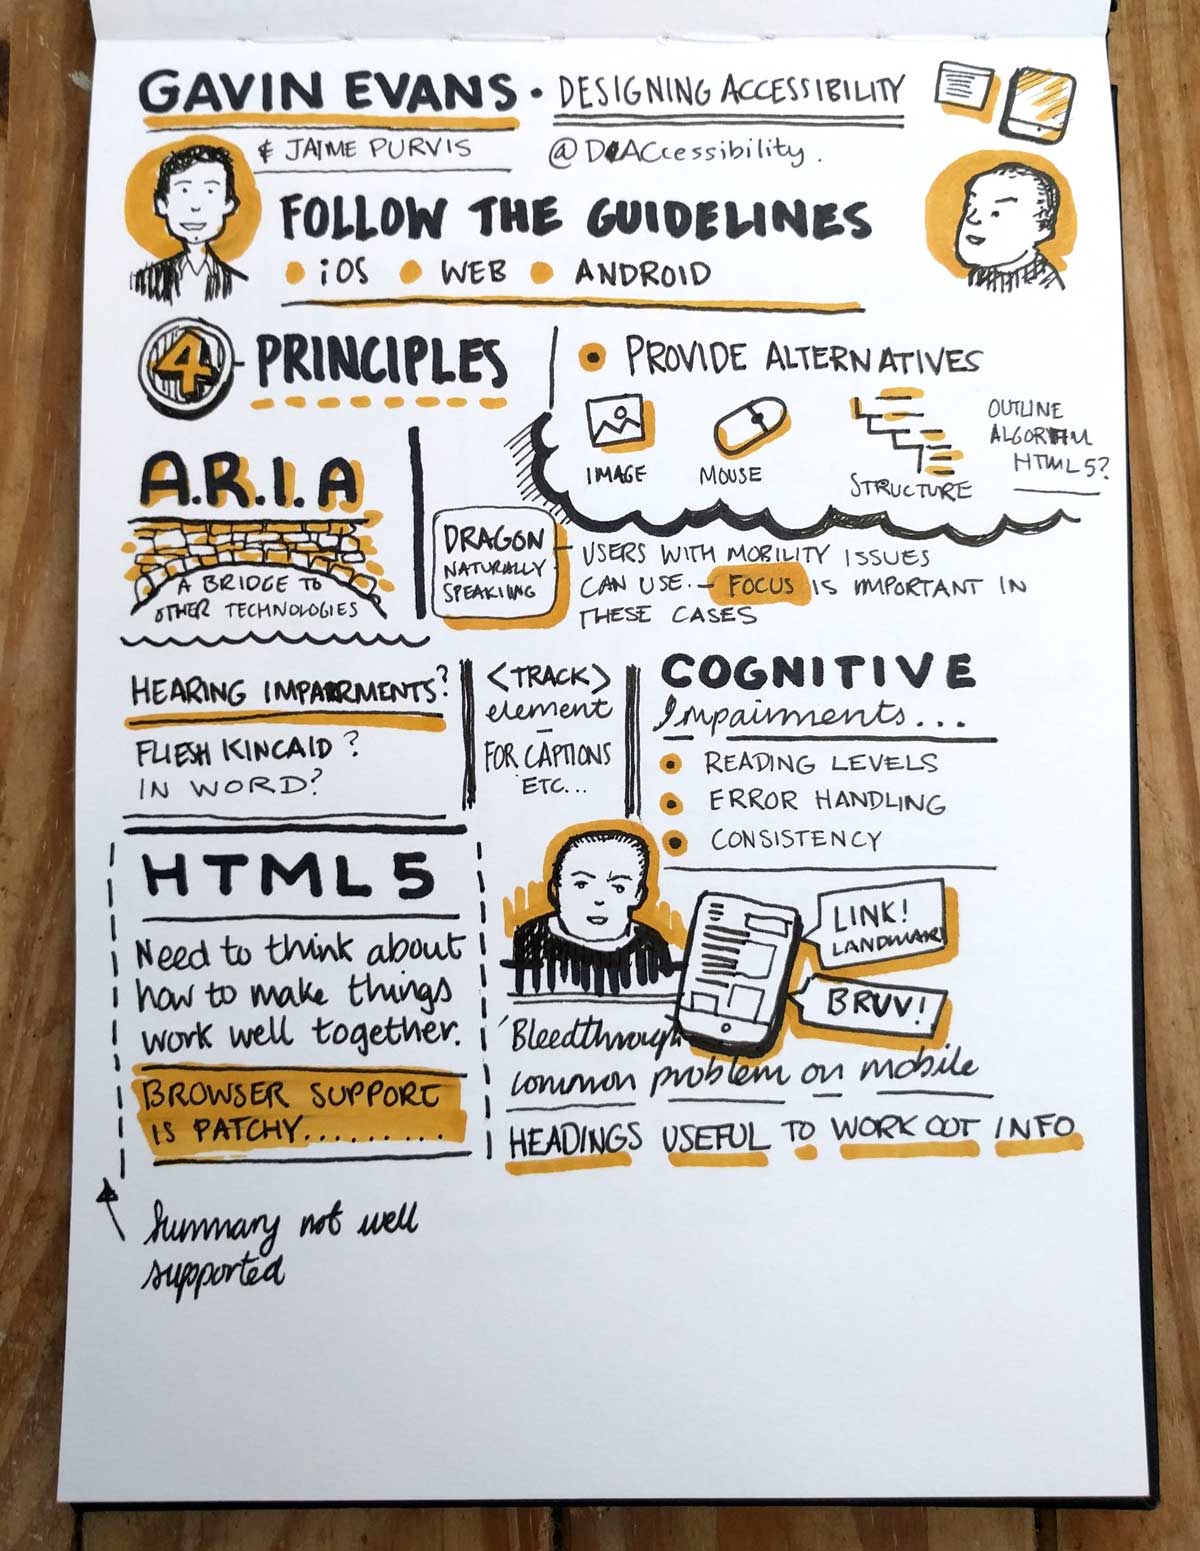 GAVIN EVANS · DESIGNING ACCESSIBILITY
& JAIME PURVIS
@DACcessibility.
FOLLOW THE GUIDELINES
iOS WEB ANDROID
4 PRINCIPLES
PROVIDE ALTERNATIVES
IMAGE
MOUSE
STRUCTURE
OUTLINE
ALGORITHM
HTML5?
A.R.I.A
A BRIDGE TO
OTHER TECHNOLOGIES
DRAGON
NATURALLY
SPEAKING
USERS WITH MOBILITY ISSUES
CAN USE. — FOCUS IS IMPORTANT IN
THESE CASES
HEARING IMPAIRMENTS?
FLIESH KINCAID?
IN WORD?
<TRACK>
element
—
FOR CAPTIONS
ETC...
COGNITIVE
Impairments...
READING LEVELS
ERROR HANDLING
CONSISTENCY
HTML5
Need to think about
how to make things
work well together.
BROWSER SUPPORT
IS PATCHY.........
Summary not well
supported
LINK!
LANDMARK
BRUV!
'Bleedthrough
common problem on mobile
HEADINGS USEFUL TO WORK OUT INFO